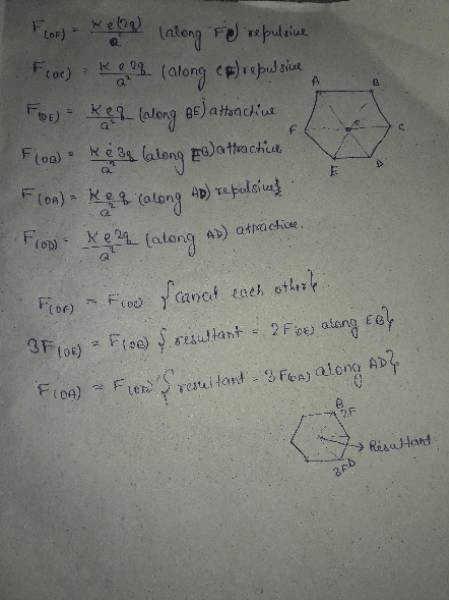 F(OF) = K e(2q)/a² (along FC) repulsive
F(OC) = K e 2q/a² (along CF) repulsive
F(OE) = K e q/a² (along BE) attractive
F(OB) = K e 3q/a² (along EB) attractive
F(OA) = K e q/a² (along AD) repulsive}
F(OD) = K e 2q/a² (along AD) attractive.
A B
F e C
E D
F(OF) = F(OC) {cancel each other}
3F(OE) = F(OB) { resultant = 2F(OE) along EB}
F(OA) = F(OD) { resultant = 3F(OA) along AD}
B
2F
Resultant
3F D